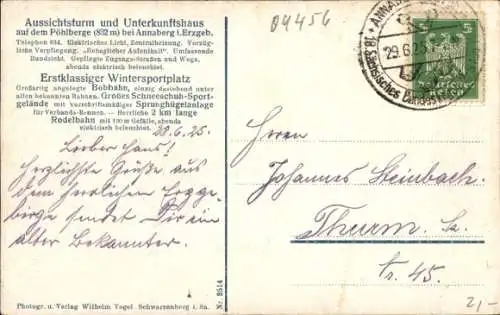 Aussichtsturm und Unterkunftshaus
auf dem Pöhlberge (832 m) bei Annaberg i. Erzgeb.
Telephon 634. Elektrisches Licht, Zentralheizung. Vorzüg-
liche Verpflegung. „Behaglicher Aufenthalt". Umfassende
Rundsicht. Gepflegte Zugangs-Straßen und Wege,
abends elektrisch beleuchtet.
Erstklassiger Wintersportplatz
Großartig angelegte Bobbahn, einzig dastehend unter
allen bekannten Bahnen. Großes Schneeschuh-Sport-
gelände mit vorschriftsmäßiger Sprunghügelanlage
für Verbands-Rennen. — Herrliche 2 km lange
Rodelbahn mit 190 m Gefälle, abends
elektrisch beleuchtet.
29.6.25.
Lieber Hans!
Herzlichste Grüße aus
dem herrlichen Erzge-
birge sendet Dir ein
alter Bekannter.
Photogr. u. Verlag Wilhelm Vogel, Schwarzenberg i. Sa.
Nr. 9514
04456
ANNA
29.6.25
Sächsisches
5
5
Herrn
Johannes Steinbach,
Thurm. Sa.
Nr. 45.
21,-